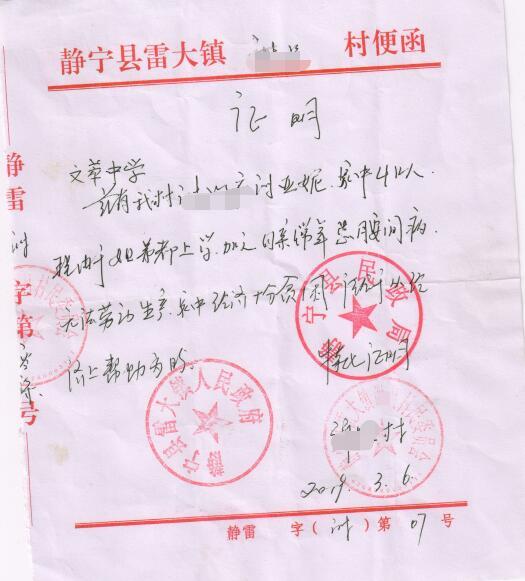 静宁县雷大镇 村便函
证明
文萃中学
兹有我村 讨亚妮，家中4口人，
姐弟都上学，加之母亲常年患腰间病，
无法劳动生产，家中经济十分贫困，
济上帮助为盼。
特此证明
村
2019.3.6
静雷 字（讨）第07号
静雷
字第
号
静宁县民政局
静宁县雷大镇人民政府
村民委员会